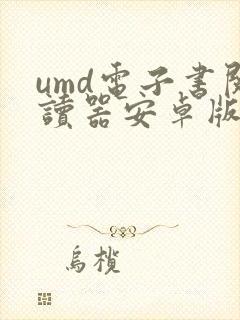 umd電子書閱
讀器安卓版
烏欖